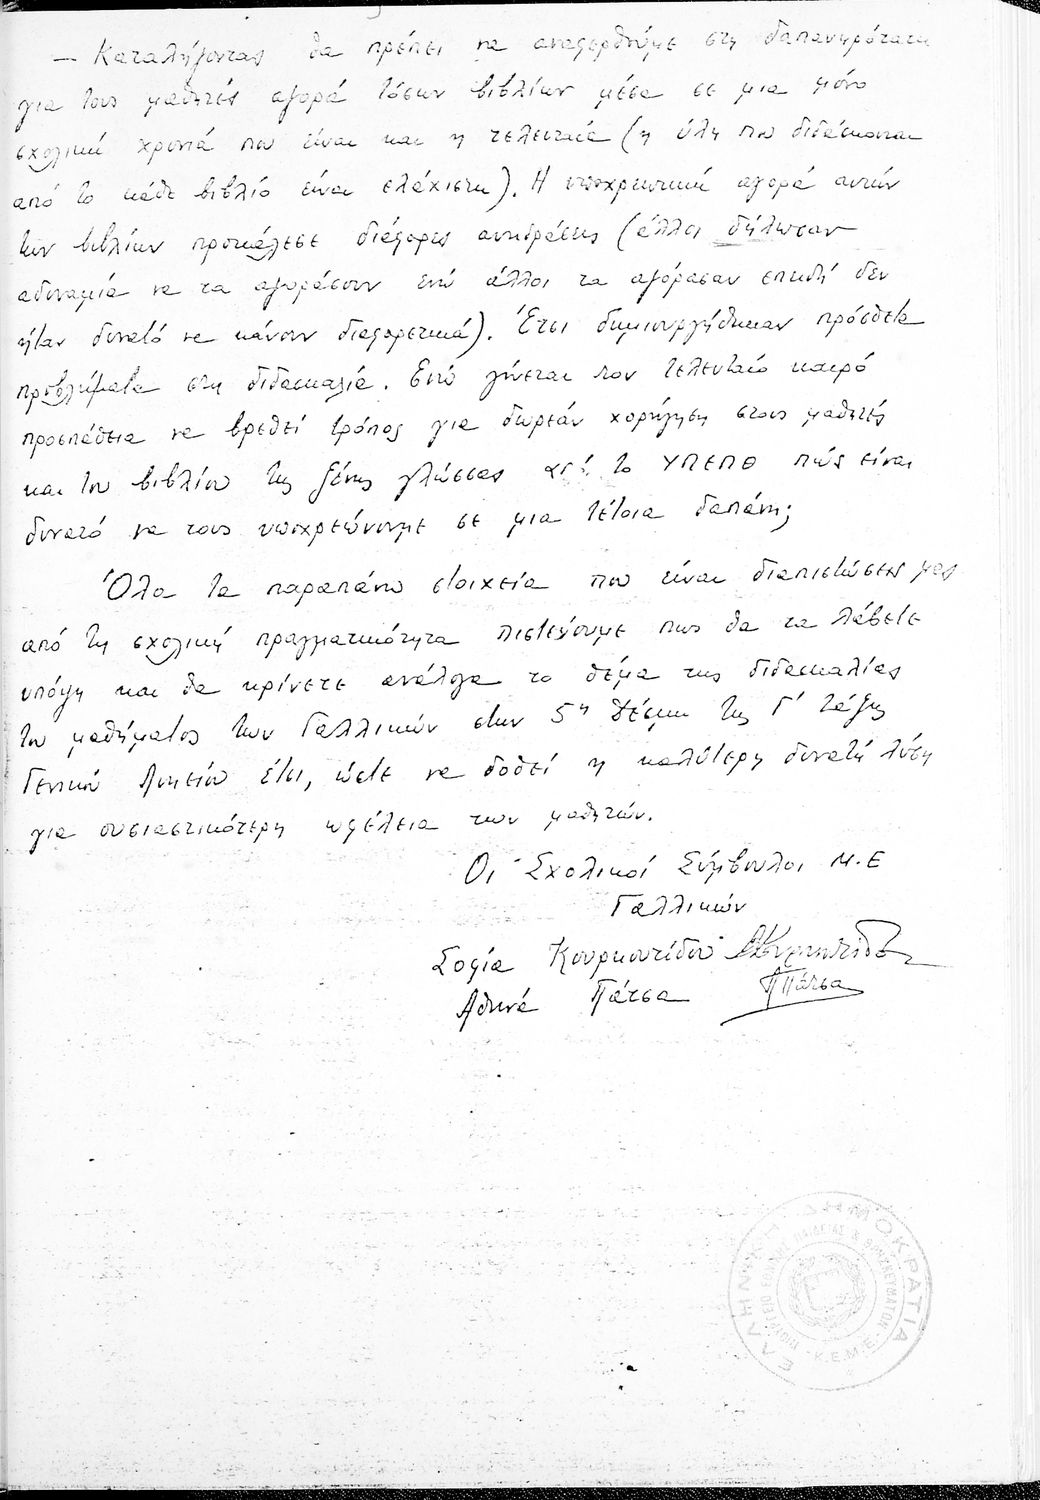 — Καταλήγοντας θα πρέπει να αναφερθούμε στη δαπανηρότατη
για τους μαθητές αγορά τόσων βιβλίων μέσα σε μια μόνο
σχολική χρονιά που είναι και η τελευταία (η ύλη που διδάσκονται
από το κάθε βιβλίο είναι ελάχιστη). Η υποχρεωτική αγορά αυτών
των βιβλίων προκάλεσε διάφορες αντιδράσεις (άλλοι δήλωσαν
αδυναμία να τα αγοράσουν ενώ άλλοι τα αγόρασαν επειδή δεν
ήταν δυνατό να κάνουν διαφορετικά). Έτσι δημιουργήθηκαν πρόσθετα
προβλήματα στη διδασκαλία. Ενώ γίνεται τον τελευταίο καιρό
προσπάθεια να βρεθεί τρόπος για δωρεάν χορήγηση στους μαθητές
και του βιβλίου της ξένης γλώσσας από το ΥΠΕΠΘ πώς είναι
δυνατό να τους υποχρεώνουμε σε μια τέτοια δαπάνη;
Όλα τα παραπάνω στοιχεία που είναι διαπιστώσεις μας
από τη σχολική πραγματικότητα πιστεύουμε πως θα τα λάβετε
υπόψη και θα κρίνετε ανάλογα το θέμα της διδασκαλίας
του μαθήματος των Γαλλικών στην 5η δέσμη της Γ' τάξης
Γενικού Λυκείου έτσι, ώστε να δοθεί η καλύτερη δυνατή λύση
για ουσιαστικότερη ωφέλεια των μαθητών.
Οι Σχολικοί Σύμβουλοι Μ.Ε
Γαλλικών
Σοφία Κουρκουτίδου
Αθηνά Πάτσα ΑΠάτσα
ΕΛΛΗΝΙΚΗ ΔΗΜΟΚΡΑΤΙΑ
ΠΑΙΔΕΙΑΣ & ΘΡΗΣΚΕΥΜΑΤΩΝ
Κ.Ε.Μ.Ε.